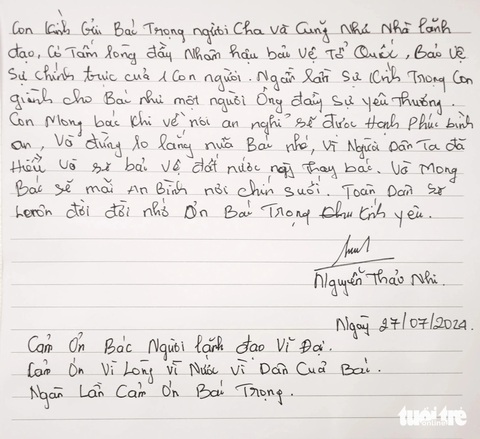 Con Kính Gửi Bác Trọng người Cha và Cũng Như Nhà lãnh
đạo, Có Tấm lòng đầy Nhân hậu bảo Vệ Tổ Quốc, Bảo Vệ
Sự chính trực của 1 Con người. Ngàn lần Sự Kính Trọng Con
giành cho Bác như một người Ông đầy Sự yêu Thương.
Con Mong bác khi về nơi an nghỉ sẽ được Hạnh Phúc bình
an, Và đừng lo lắng nữa Bác nhé, Vì Người Dân Ta đã
Hiểu Và sẽ bảo Vệ đất nước này thay bác. Và Mong
Bác sẽ mãi An Bình nơi chín Suối. Toàn Dân sẽ
luôn đời đời nhớ Ơn Bác Trọng Kính yêu.
Nguyễn Thảo Nhi.
Ngày 27/07/2024
Cảm Ơn Bác Người lãnh đạo Vĩ Đại.
Cảm Ơn Vì Lòng Vì Nước Vì Dân Của Bác.
Ngàn Lần Cảm Ơn Bác Trọng.
tuổi trẻ